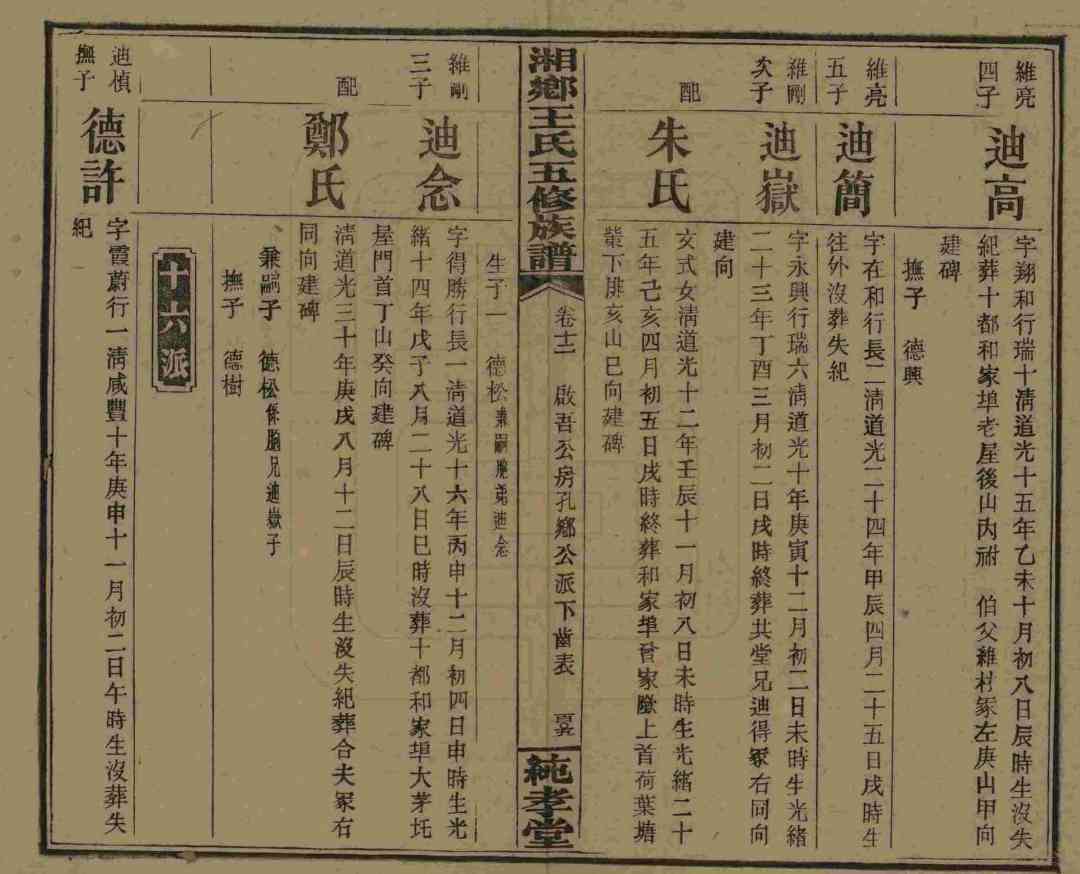 維亮
四子
迪高
字翔和行瑞十清道光十五年乙未十月初八日辰時生沒失
紀葬十都和家埠老屋後山內祔 伯父維村冢左庚山甲向
建碑
撫子 德興
維亮
五子
迪簡
字在和行長二清道光二十四年甲辰四月二十五日戌時生
往外沒葬失紀
維剛
次子
迪嶽
字永興行瑞六清道光十年庚寅十二月初二日未時生光緒
二十三年丁酉三月初二日戌時終葬共堂兄迪得冢右同向
建向
配
朱氏
文式女清道光十二年壬辰十一月初八日未時生光緒二十
五年己亥四月初五日戌時終葬和家埠晉家 上首荷葉塘
下排亥山巳向建碑
生子一 德松兼嗣胞弟迪念
湘鄉王氏五修族譜
卷十二 啟吾公房孔鄉公派下齒表
純孝堂
維剛
三子
迪念
字得勝行長一清道光十六年丙申十二月初四日申時生光
緒十四年戊子八月二十八日巳時沒葬十都和家埠大茅坵
屋門首丁山癸向建碑
配
鄭氏
清道光三十年庚戌八月十二日辰時生沒失紀葬合夫冢右
同向建碑
兼嗣子 德松係胞兄迪嶽子
撫子 德樹
十六派
迪楨
撫子
德許
字霞蔚行一清咸豐十年庚申十一月初二日午時生沒葬失
紀